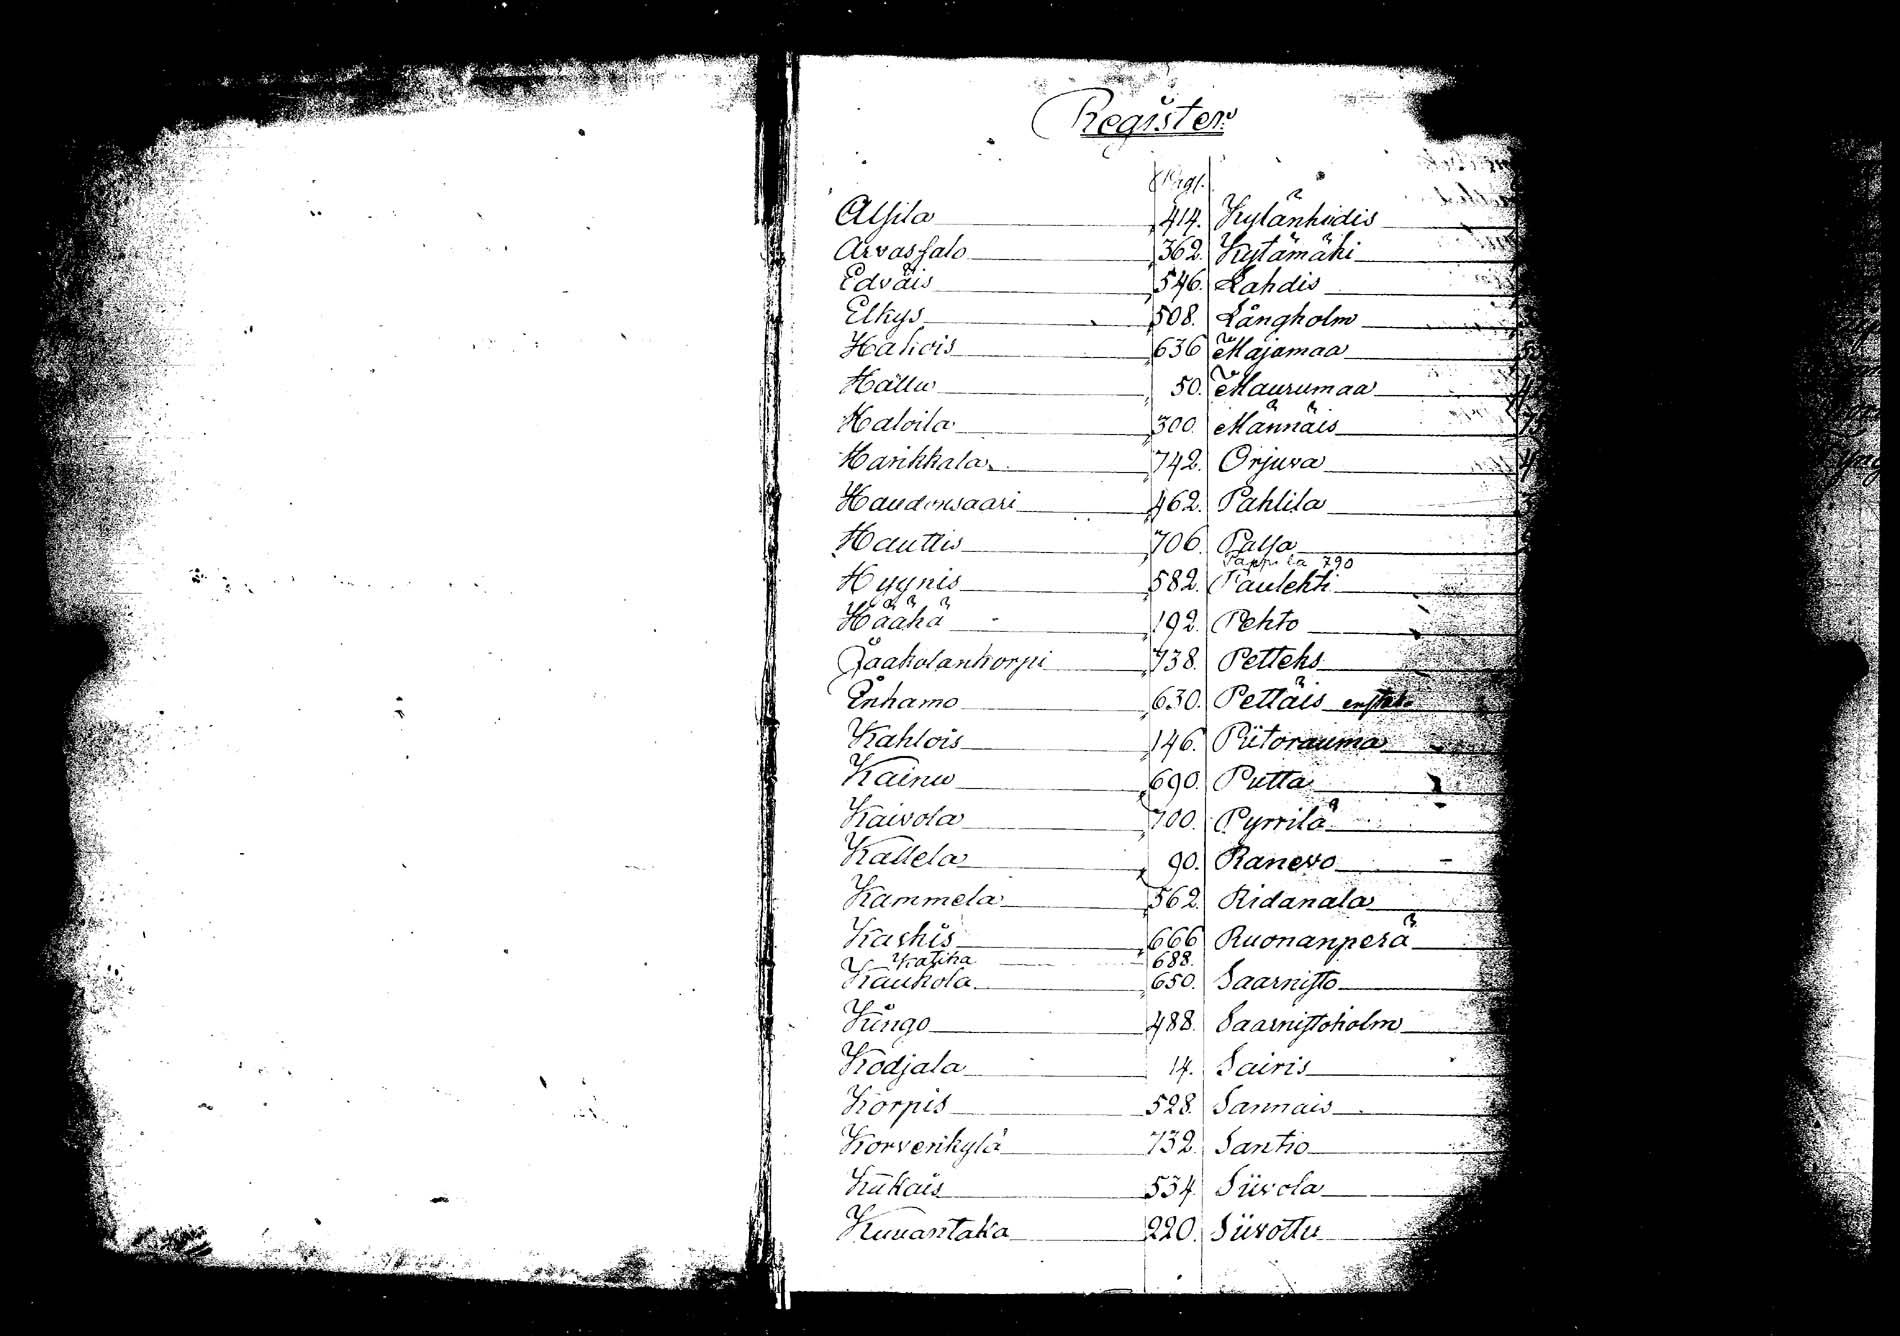 Register.
Pag.
Alsila 414. Kylänhiidis
Arvassalo 362. Kytämäki
Edväis 546. Lahdis
Elkys 508. Långholm
Haliois 636 Majamaa
Hallu 50. Maurumaa
Haloila 300. Männäis
Harikkala 742. Orjuva
Haudonsaari 462. Pahlila
Hauttis 706. Palsa
Pappila 790
Hyynis 582. Paulehti
Häähä 192. Pehto
Jaakolankorpi 738. Petteks
Inhamo 630. Pettäis
Kahlois 146. Riitorauma
Kainu 690. Putta
Kaivola 700. Pyrrilä
Kallela 90. Ranevo
Kammela 562. Ridanala
Kaskis 666 Ruonanperä
Katika 688.
Kaukola 650. Saarnisto
Kiingo 488. Saarnistoholm
Kodjala 14. Sairis
Korpis 528. Sannais
Korvenkylä 732. Santio
Kukais 534. Siivola
Kuuantaka 220. Siivottu